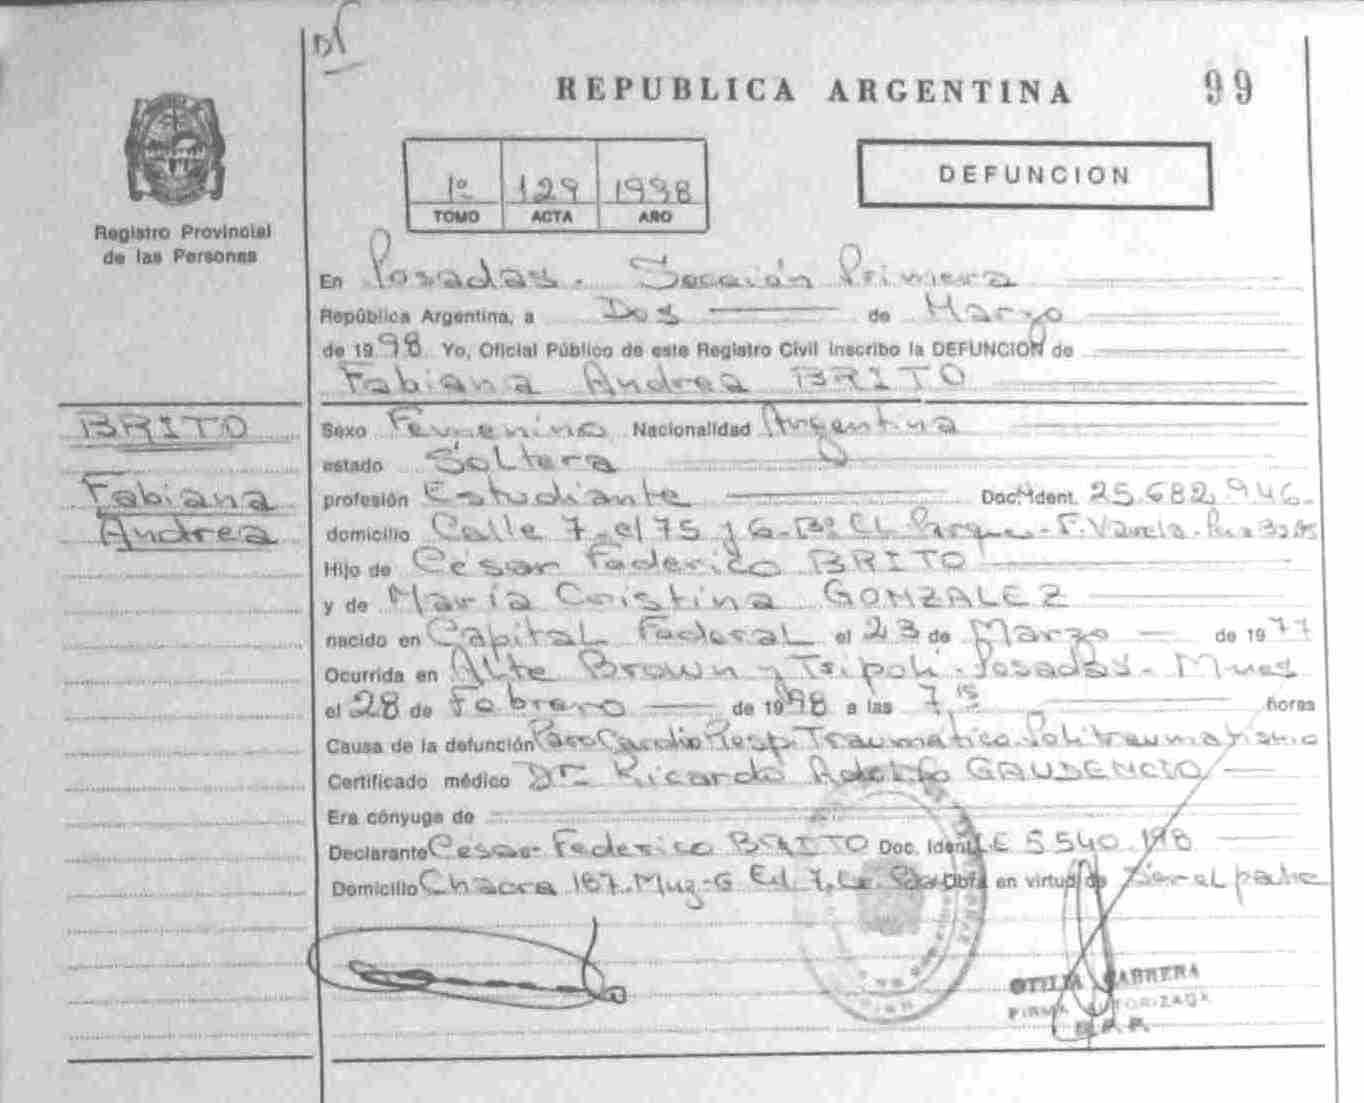 REPUBLICA ARGENTINA 99
Registro Provincial
de las Personas
1º 129 1998
TOMO ACTA AÑO
DEFUNCION
En Posadas. Sección Primera
República Argentina, a Dos de Marzo
de 1998 Yo, Oficial Público de este Registro Civil inscribo la DEFUNCION de
Fabiana Andrea BRITO
BRITO
Fabiana
Andrea
Sexo Femenino Nacionalidad Argentina
estado Soltera
profesión Estudiante Doc. Ident. 25.682.946.
domicilio Calle 7 e/75 y 6-Bº El Parque-F. Varela
Hijo de César Federico BRITO
y de María Cristina GONZALEZ
nacido en Capital Federal el 23 de Marzo de 1977
Ocurrida en Alte Brown y Tripoli-Posadas-Mnes
el 28 de Febrero de 1998 a las 7,15 horas
Causa de la defunción Paro Cardio Resp. Traumático. Politraumatismo
Certificado médico Dr. Ricardo Adolfo GAUDENCIO
Era cónyuge de
Declarante César Federico BRITO Doc. Ident. LE 5.540.198
Domicilio Chacra 187. Muz-G Ed. 7. Obra en virtud de Ser el padre
OTILIA CABRERA
FIRMA AUTORIZADA